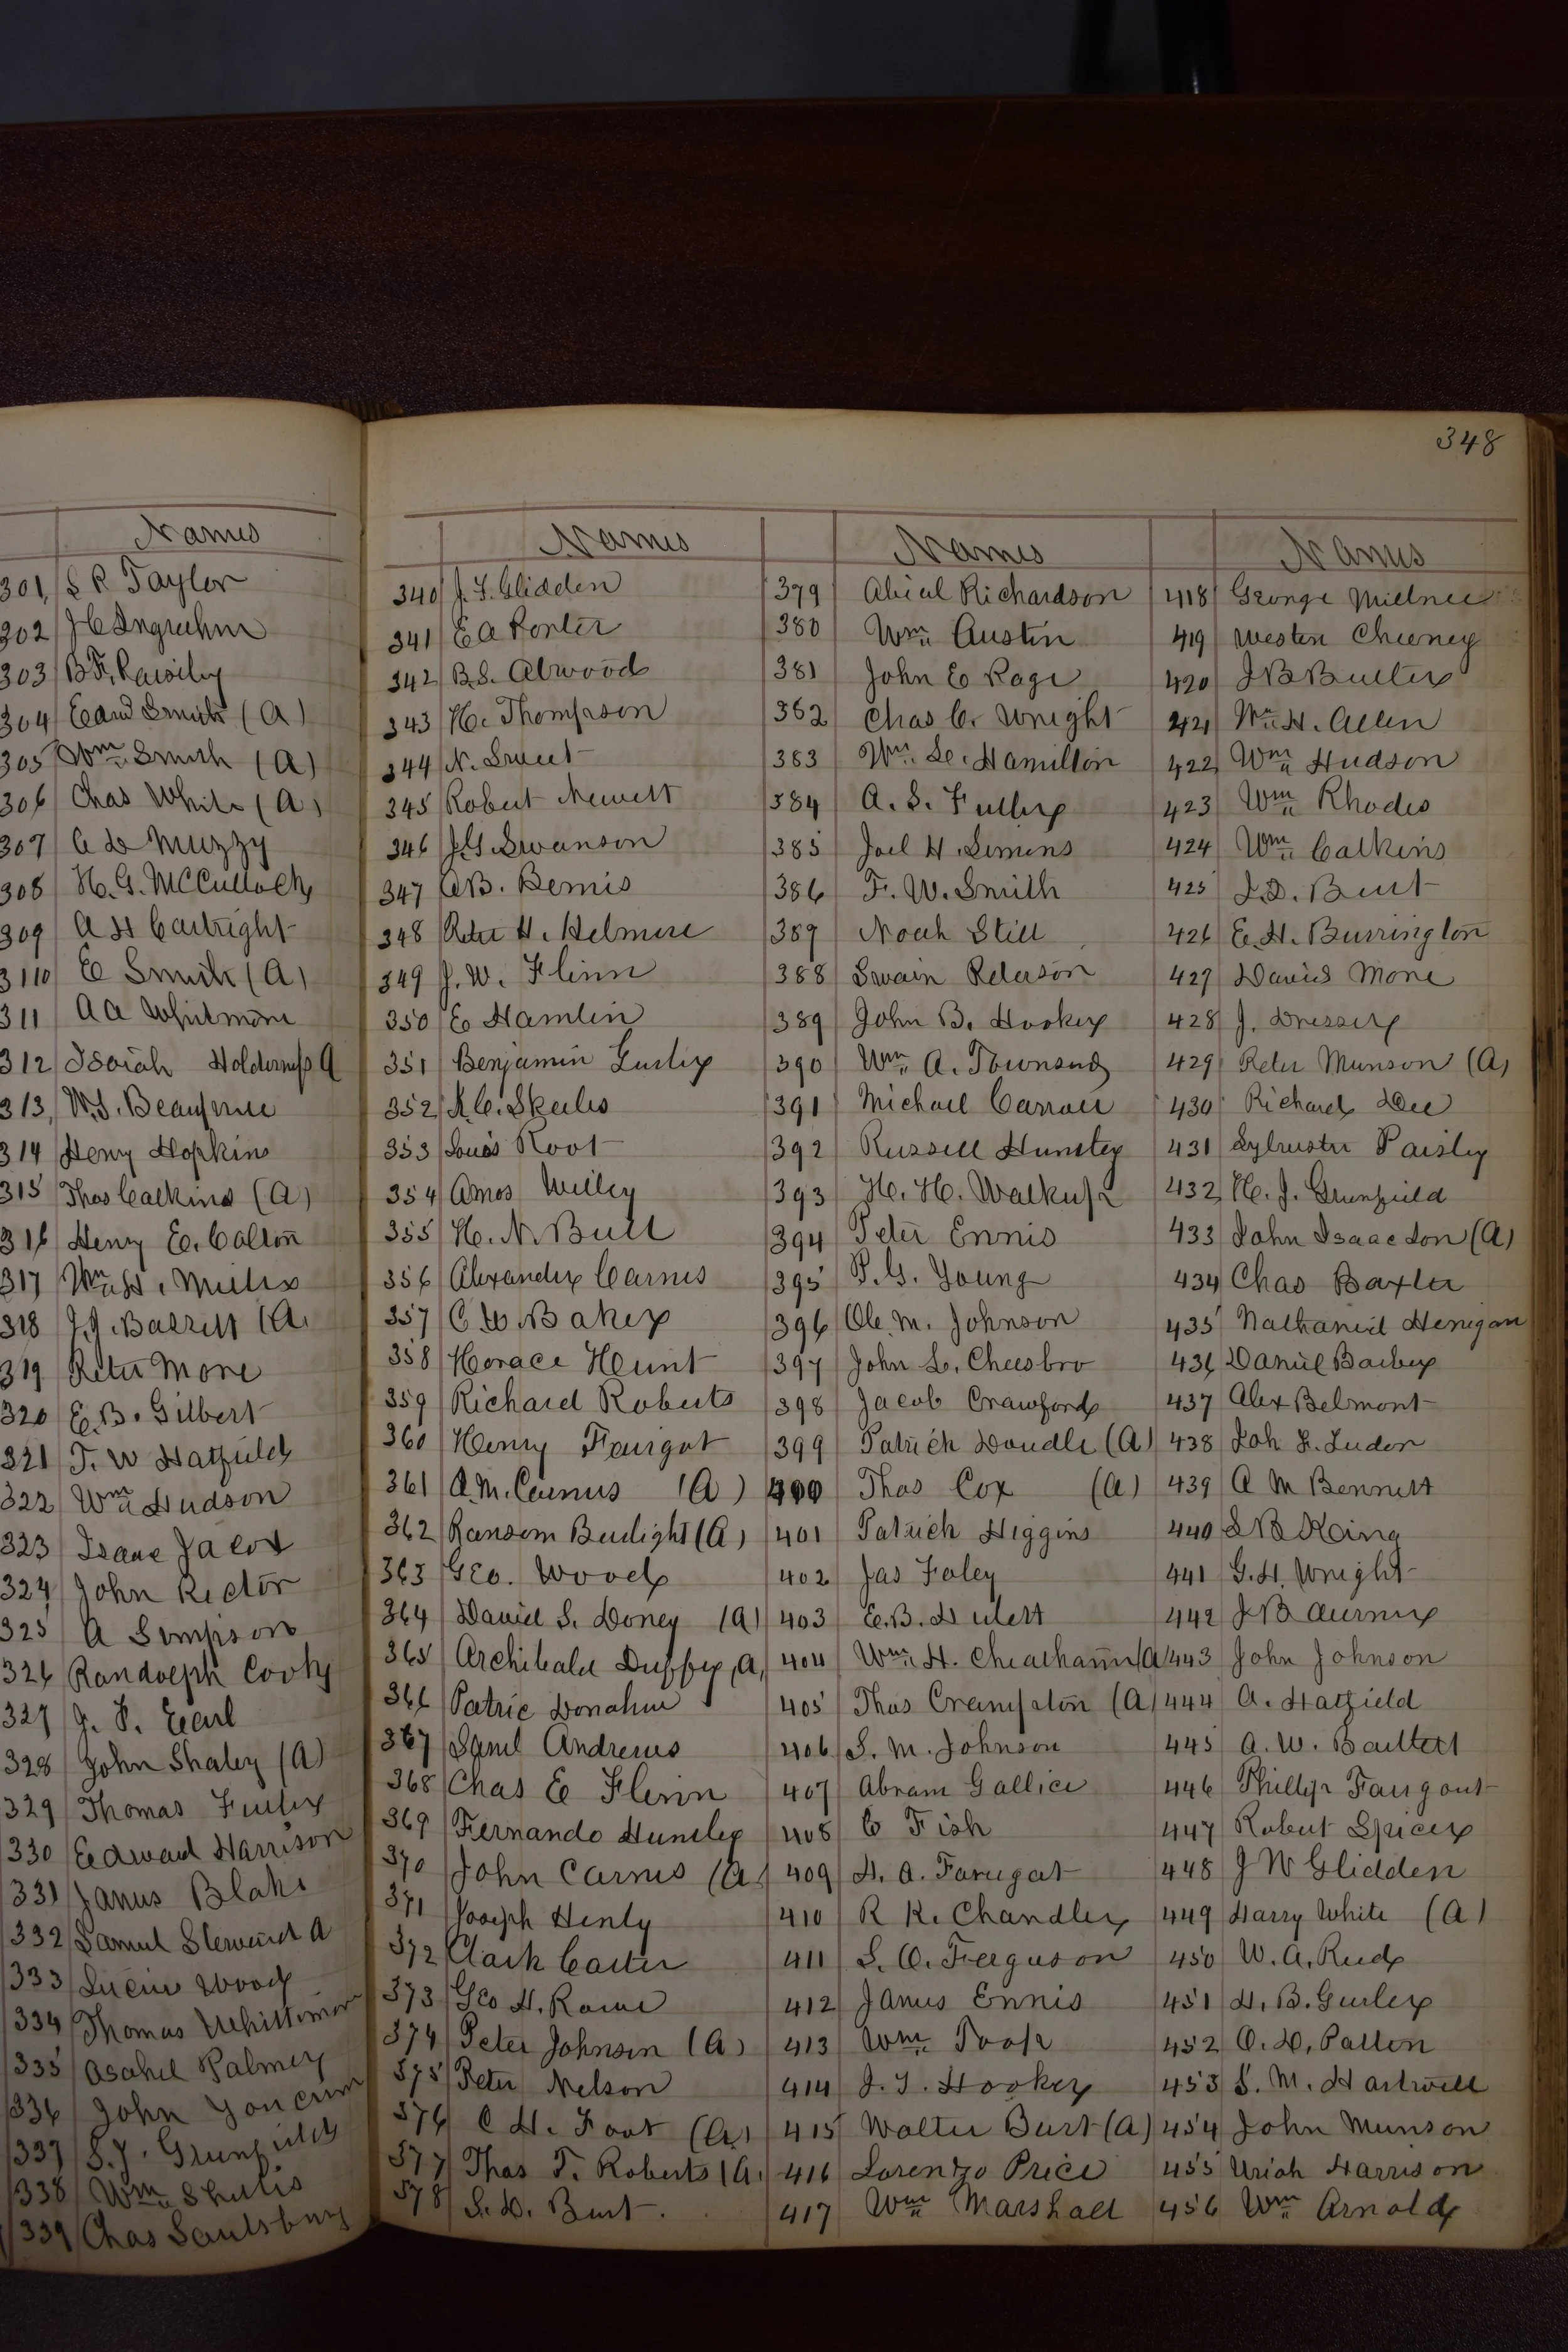 348
Names
301 S R Taylor
302 J C Ingraham
303 B.F. Paisley
304 Edwd Smith (A)
305 Wm Smith (A)
306 Chas White (A)
307 C D Muzzy
308 H. G. McCulloch
309 A H Cartright
3110 E Smith (A)
311 A A Whitmore
312 Isaiah Holderness A
313 W. J.
314 Henry Hopkins
315 Thos Calkins (A)
316 Henry E. Colton
317 Wm H. Miller
318 J. J. Barrett (A)
319 Peter More
320 E. B. Gilbert
321 T. W Hatfield
322 Wm Hudson
323 Isaac Jacox
324 John Rector
325 A Simpson
326 Randolph Cooly
327 J. P. Earl
328 John Shaley (A)
329 Thomas Fuller
330 Edward Harrison
331 James Blake
332 Samuel Steward A
333 Lucius Wood
334 Thomas Whittimor
335 Asahel Palmer
336 John
337 S. J. Grunfield
338 Wm Shults
339 Chas Saulsbury
Names
340 J. F. Glidden
341 E A Porter
342 B. S. Atwood
343 H. Thompson
344 N. Sweet
345 Robert Newett
346 J. G. Swanson
347 A B. Bemis
348 Peter H. Helmere
349 J. W. Flinn
350 E Hamlin
351 Benjamin Gurley
352 K. C. Skeels
353 Louis Root
354 Amos Willey
355 H. N. Bull
356 Alexander Carnes
357 C W. Baker
358 Horace Hunt
359 Richard Roberts
360 Henry Faurgat
361 A. M. Carnes (A)
362 Ransom Burlight (A)
363 Geo. Wood
364 David S. Doney (A)
365 Archibald Duffey (A)
366 Patric Donahue
367 Saml Andrews
368 Chas E Flinn
369 Fernando Hunsley
370 John Carnes (A)
371 Joseph Henly
372 Clark Carter
373 Geo H. Rowe
374 Peter Johnson (A)
375 Peter Nelson
376 C H. Foot (A)
377 Thos T. Roberts (A)
378 S. D. Burt.
Names
379 Abial Richardson
380 Wm Austin
381 John E Page
382 Chas C. Wright
383 Wm Le. Hamilton
384 A. S. Fuller
385 Joel H. Simens
386 F. W. Smith
387 Noah Still
388 Swain Peterson
389 John B. Hooker
390 Wm A. Townsend
391 Michael Carroll
392 Russell Huntley
393 H. H. Walkup
394 Peter Ennis
395 P. G. Young
396 Ole M. Johnson
397 John L. Cheesbro
398 Jacob Crawford
399 Patrick Doudle (A)
400 Thos Cox (A)
401 Patrick Higgins
402 Jas Foley
403 E. B. Hulett
404 Wm H. Cheatham (A
405 Thos Crampton (A)
406 S. M. Johnson
407 Abram Gallice
408 C Fish
409 H. A. Farugat
410 R K. Chandler
411 S. O. Ferguson
412 James Ennis
413 Wm Toop
414 J. T. Hooker
415 Walter Burt (A)
416 Lorenzo Price
417 Wm Marshall
Names
418 George Millnee
419 Westen Cheeney
420 J B Butler
421 Wm H. Allen
422 Wm Hudson
423 Wm Rhodes
424 Wm Calkins
425 S. D. Burt
426 E. H. Burrington
427 David More
428 J. Dresser
429 Peter Munson (A)
430 Richard Dee
431 Sylvester Paisley
432 H. J. Grunfield
433 John Isaacson (A)
434 Chas Baxter
435 Nathaniel Henigan
436 Daniel Barber
437 Alex Belmont
438 Joh F. Ludor
439 A M Bennett
440 S B King
441 G. H. Wright
442 J B Aurner
443 John Johnson
444 A. Hatfield
445 A. W. Bartlett
446 Phillip Faurgout
447 Robert Spicer
448 J W Glidden
449 Harry White (A)
450 W. A. Reed
451 H. B. Gurley
452 O. D. Patten
453 S. M. Hartwell
454 John Munson
455 Uriah Harrison
456 Wm Arnold